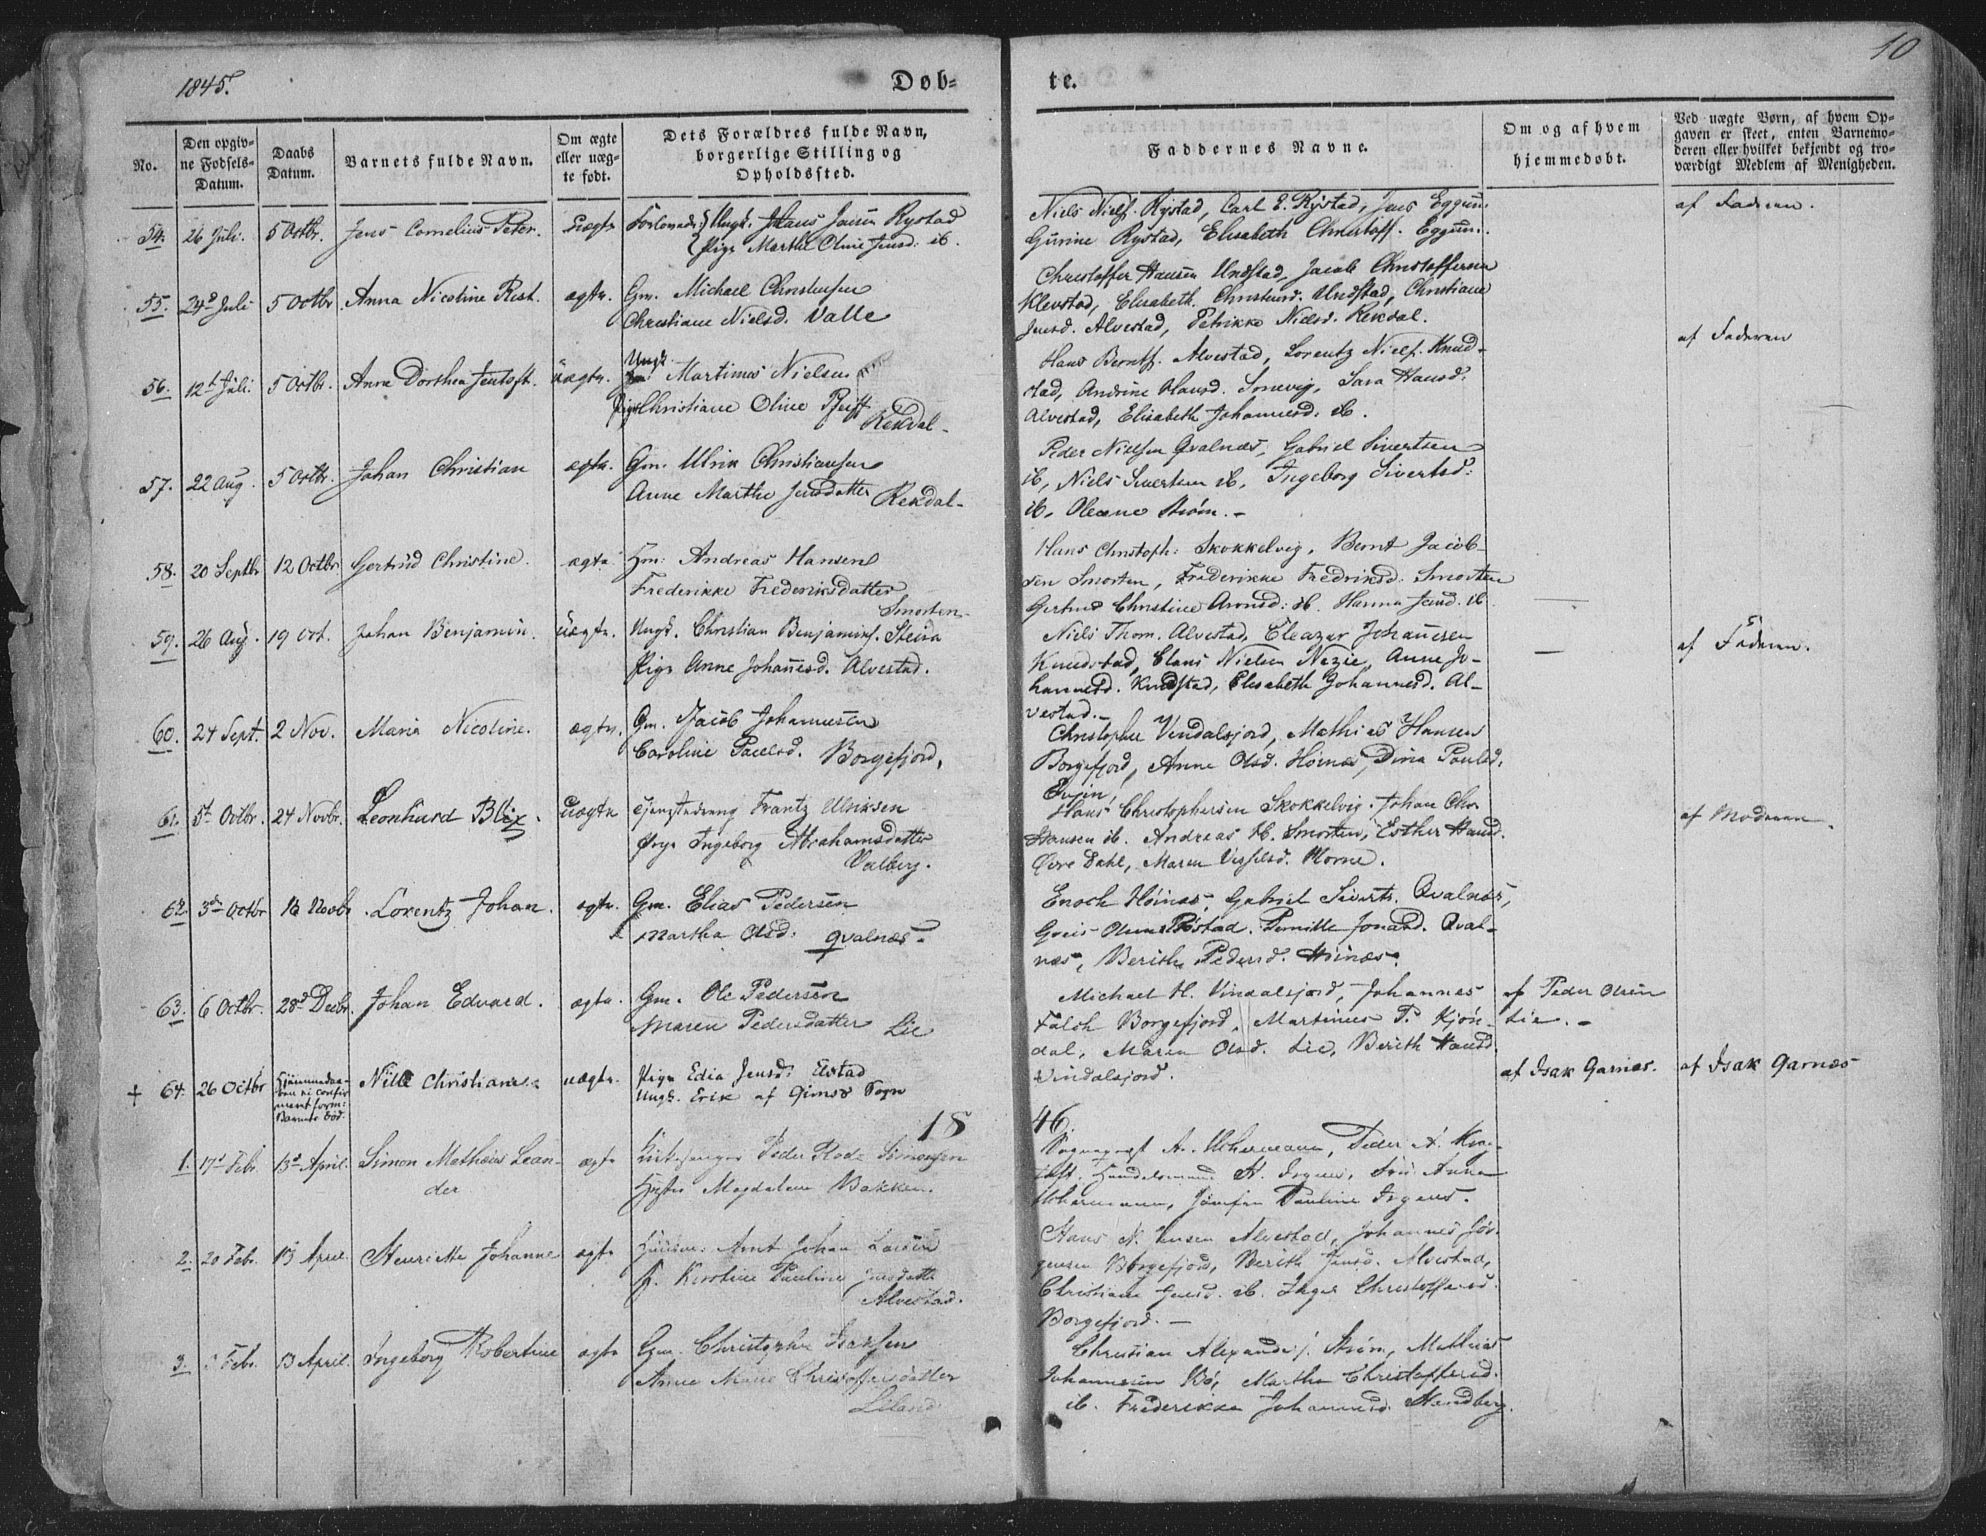 1845.
Døb-
te.
10
No.
Den opgiv-
ne Fødsels-
Datum.
Daabs
Datum.
Barnets fulde Navn.
Om ægte
eller uæg-
te født.
Dets Forældres fulde Navn,
borgerlige Stilling og
Opholdssted.
Faddernes Navne.
Om og af hvem
hjemmedøbt.
Ved uægte Børn, af hvem Op-
gaven er skeet, enten Barnemo-
deren eller hvilket bekjendt og tro-
værdigt Medlem af Menigheden.
54. 26 Juli. 5 Octbr. Jens Cornelius Peter. uægte Ungk. Hans Rystad
Pige Marthe Oline Jensd: ib.
Niels Niels. Rystad, Carl E. Rystad, Jens Eggum.
Gurine Rystad, Elisabeth Christoff. Eggum.
af Faderen.
55. 24d Juli 5 Octbr Anna Nicoline Rest. ægte. Gm. Michael Christensen
Christiane Nielsd. Valle
Christoffer Hansen Undstad, Jacob Christoffersen
Klevstad, Elisabeth Undstad, Christiane
Jensd. Alvestad, Petrikke Nielsd. Rekdal.
56. 12t Juli. 5 Octbr. Anne Dorthea Jentoft. uægte. Ungk. Martines Nielsen
Pige Christiane Oline
Rekdal.
Hans Berntf. Alvestad, Lorentz Nielf. Knud-
stad, Andrine Hansd. Sara Hansd:
Alvestad, Elisabeth Johannesd: ib.
af Faderen
57. 22 Aug. 5 Octbr. Johan Christian ægte. Gm. Ulrik Christiansen
Anne Marthe Jensdatter Rekdal.
Peder Nielsen Qvalnæs, Gabriel Sivertsen
ib, Niels Sivertsen ib, Ingeborg Sivertsd:
ib. Oleane Strøm.
58. 20 Septbr 12 Octbr Gertrud Christine. ægte Hm: Andreas Hansen
Frederikke Frederiksdatter
Smorten
Hans Christoph: Skokkelvig, Bernt Jacob-
sen Smorten, Frederikke Fredriksd: Smorten
Gertrud Christine Aronsd: ib. Hanna Jensd. ib.
59. 26 Aug. 19 Oct. Johan Benjamin. uægte. Ungk. Christian Benjaminf. Steira
Pige Anne Johannesd. Alvestad.
Niels Thom. Alvestad, Eleazar Johannesen
Knudstad, Claus Nielsen Anne Jo-
hannesd. Knudstad, Elisabeth Johannesd. Al-
vestad.
af Faderen.
60. 24 Sept. 2 Nov. Maria Nicoline. ægte. Gm. Jacob Johannesen
Caroline Paulsd. Borgefjord.
Christopher Vindalsjord, Mathias Hansen
Borgefjord, Anne Olsd. Høinæs, Dina Paulsd.
61. 5t Octbr. 24 Novbr. Leonhard Blix. uægte Frantz Ulriksen
Pige Ingeborg Abrahamsdatter
Valberg.
Hans Christophersen Skokkelvig, Johan Chr.
Hansen ib. Andreas H. Smorten, Esther Hansd.
Øvre Dahl, Maren
af Moderen.
62. 3d Octbr 16 Novbr. Lorentz Johan. ægte. Gm. Elias Pedersen
Martha Olsd: Qvalnæs.
Enoch Høinæs, Gabriel Siverts. Qvalnæs,
Pernille Jonasd. Qval-
næs, Berith Pedersd. Høinæs.
63. 6 Octbr. 28d Decbr. Johan Edvard. ægte. Gm. Ole Pedersen
Maren Pedersdatter Lie
Michael H. Vindalsjord, Johannes
Falch Borgefjord, Martinus P. Kjøn-
dal, Maren Olsd. Lie, Berith Hansd.
Vindalsjord.
af Peder Olsen
Lie.
+ 64. 26 Octbr Hjemmedaa-
Nille Christiane uægte. Pige Edia Jensd: Elstad
Ungk. Erik af Gimsø Sogn
af Isak Garnæs.
af Isak Garnæs
18
46.
1. 17d Febr. 13d April. Simon Mathias Lean-
der
ægte Kirkesanger Peder Simonsen
Hustru Magdalene Bakken.
Sogneprest A. Uchermann, Peder A.
Handelsmand H. Irgens, Anna
Uchermann, Jomfru Pauline Irgens.
2. 20 Febr. 13 April Henriette Johanne ægte Arnt Johan
Kirstine Pauline Jensdatter
Alvestad.
Hans N. Jensen Alvestad, Johannes Jør-
gensen Borgefjord, Berith Jensd. Alvestad,
Christiane Jensd. ib. Inger Christoffersd.
Borgefjord.
3. Febr. 13 April. Ingeborg Robertine ægte Gm. Christopher Isaksen
Anne Marie Christoffersdatter
Leland
Christian Alexanders. Strøm, Mathias
Johannesen Bø, Martha Christoffersd.
ib. Frederikke Johannesd.